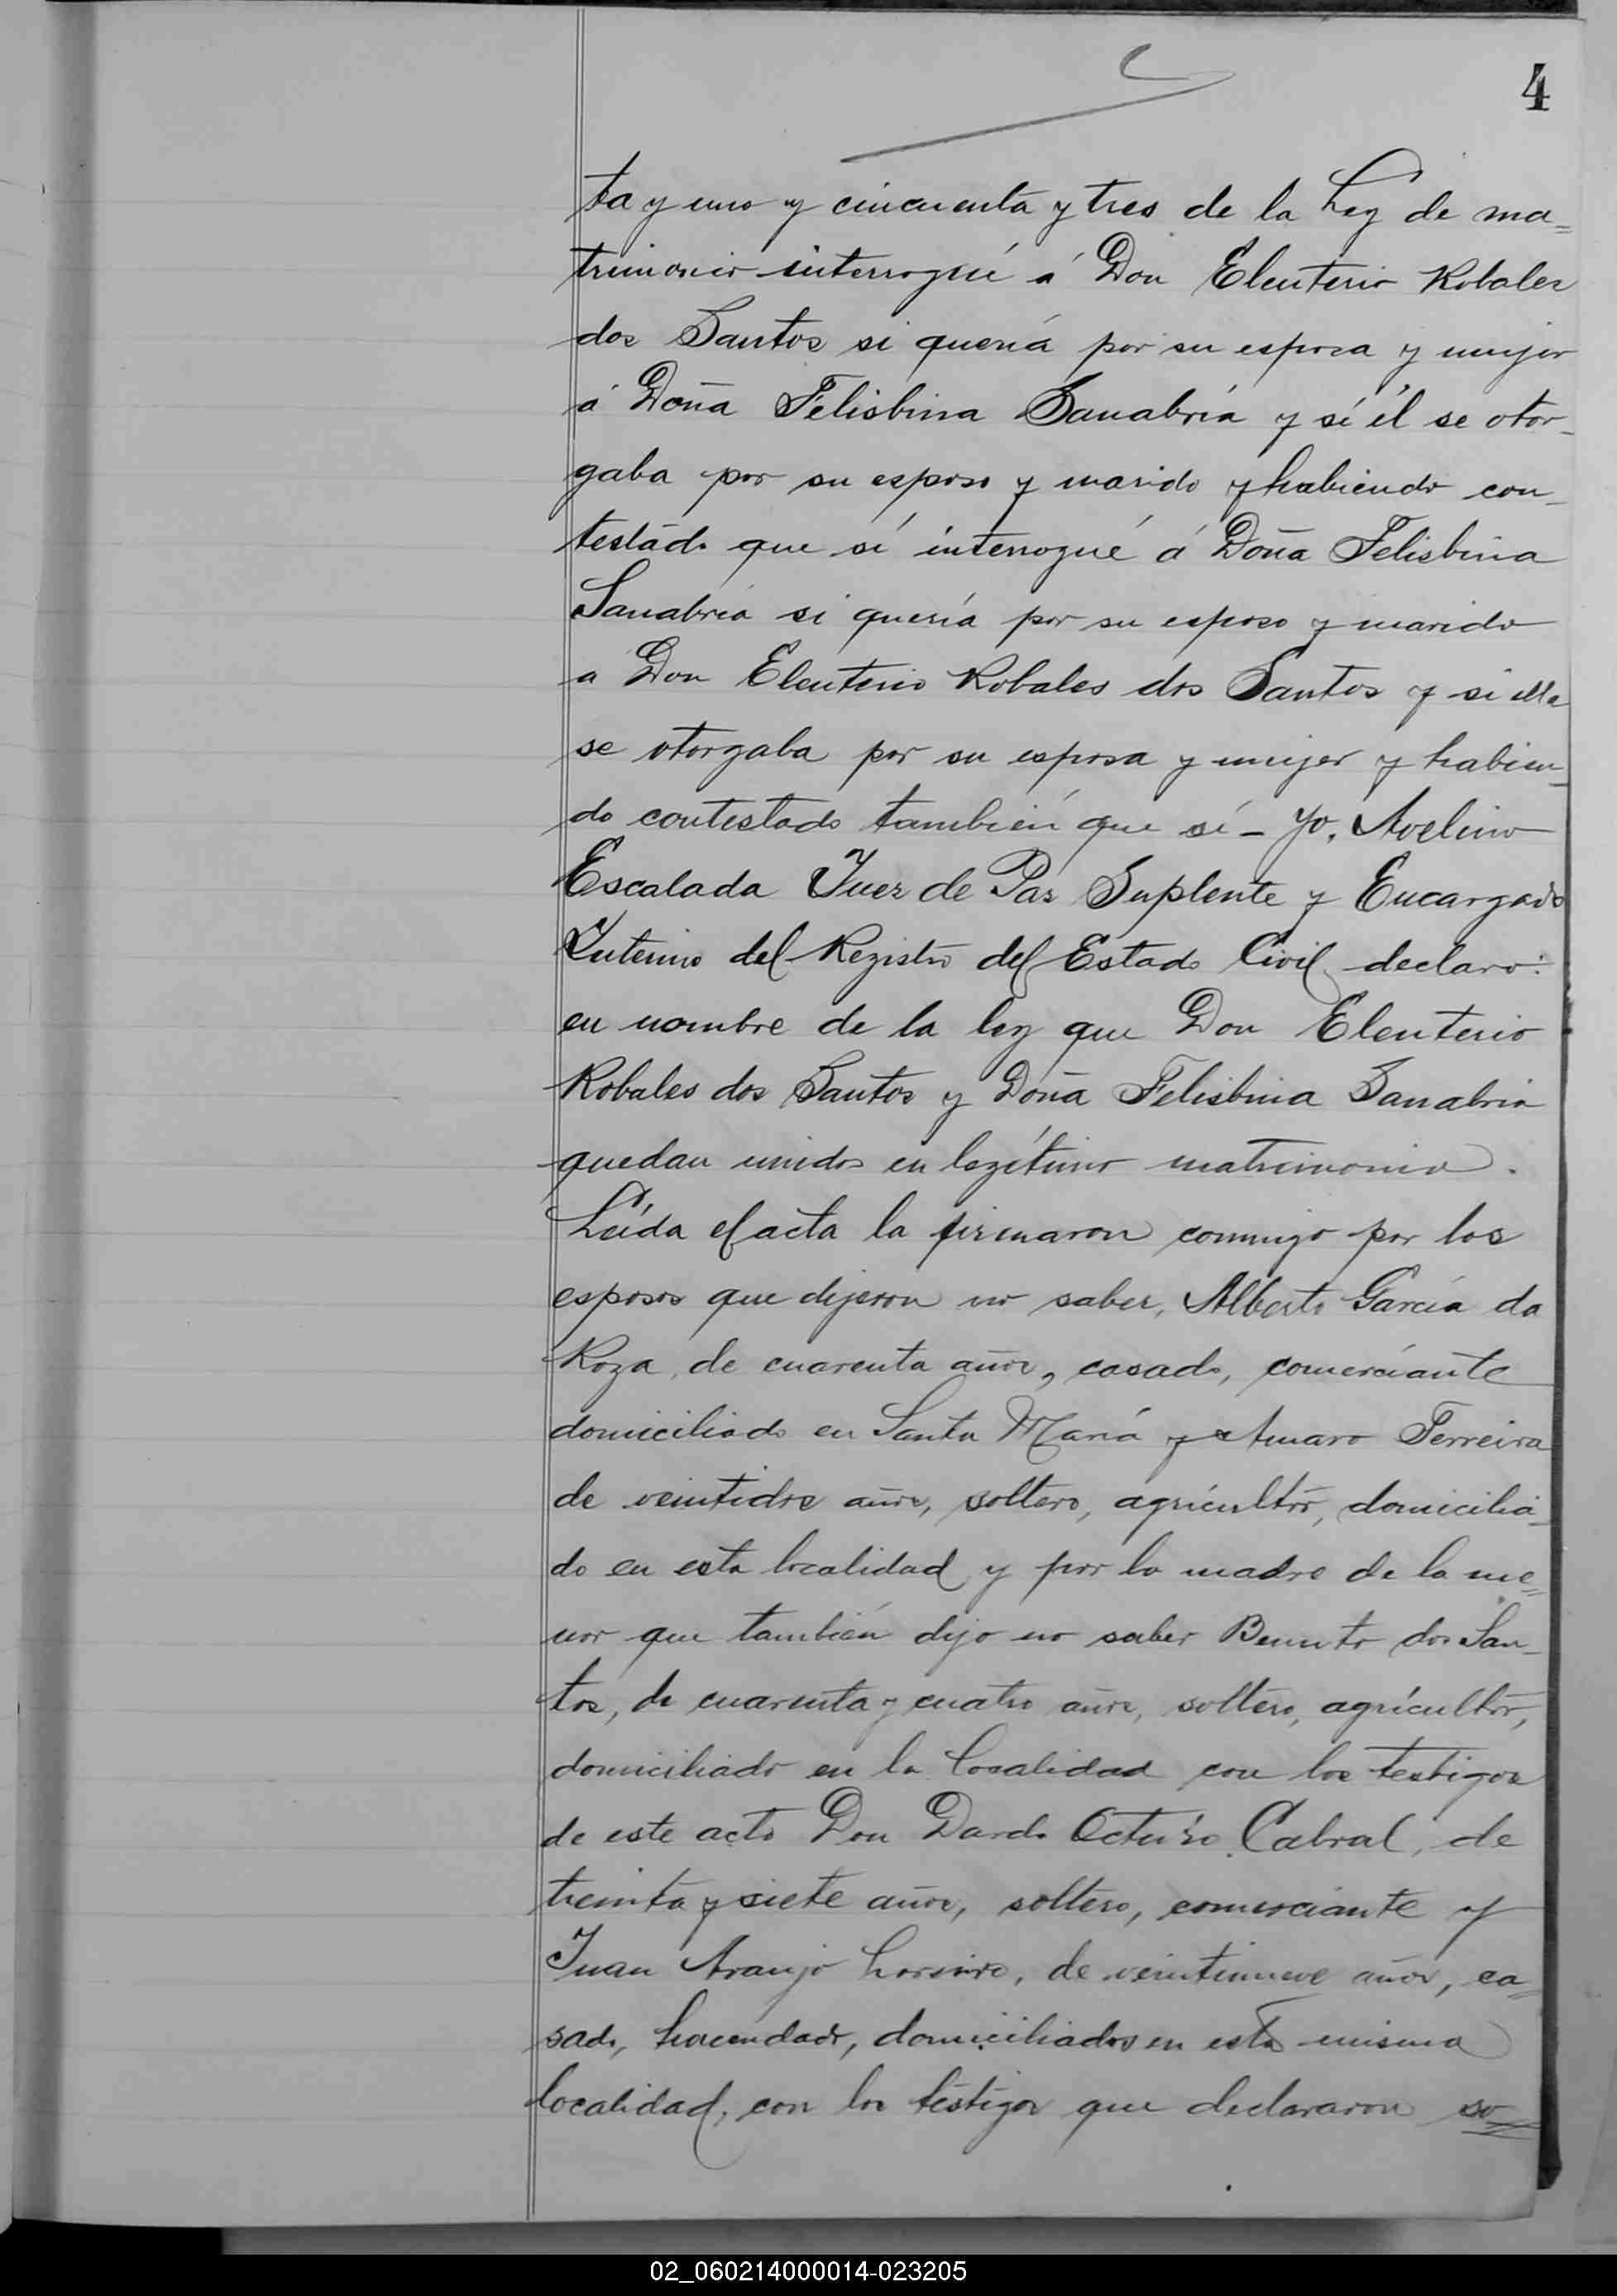 4
ta y uno y cincuenta y tres de la Ley de ma=
trimonio interrogué á Don Eleuterio Robales
dos Santos si quería por su esposa y mujer
á Doña Felisbina Sanabria y sí él se otor-
gaba por su esposo y marido y habiendo con-
testado que sí interrogué á Doña Felisbina
Sanabria si quería por su esposo y marido
a Don Eleuterio Robales dos Santos y si ella
se otorgaba por su esposa y mujer y habien-
do contestado también que sí - Yo, Avelino
Escalada Juez de Paz Suplente y Encargado
Interino del Registro del Estado Civil declaro:
en nombre de la ley que Don Eleuterio
Robales dos Santos y Doña Felisbina Sanabria
quedan unidos en legítimo matrimonio.
Leída el acta la firmaron conmigo por los
esposos que dijeron no saber, Alberto García da
Roza, de cuarenta años, casado, comerciante
domiciliado en Santa María y Amaro Ferreira
de veintidos años, soltero, agricultor, domicilia-
do en esta localidad y por la madre de la me=
nor que también dijo no saber Benito dos San-
tos, de cuarenta y cuatro años, soltero, agricultor,
domiciliado en la localidad con los testigos
de este acto Don Dardo Cabral, de
treinta y siete años, soltero, comerciante y
Juan Araujo, de veintinueve años, ca=
sado, hacendado, domiciliados en esta misma
localidad, con los testigos que declararon so=
02_060214000014-023205